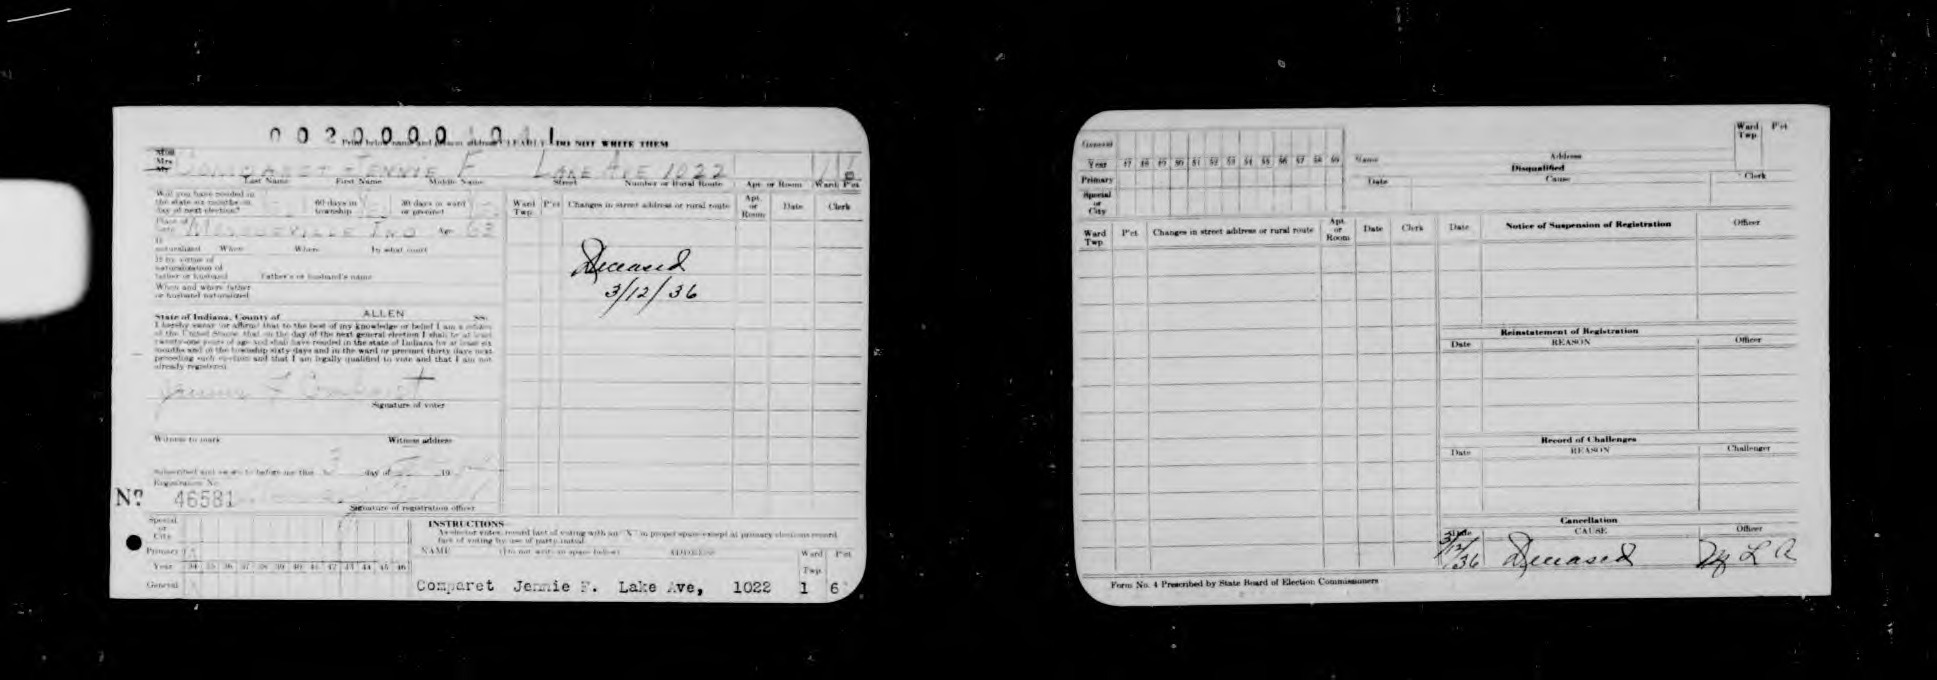 0 0 2 0 0 0 0 1 0 1
Print below name and present address CLEARLY DO NOT WRITE THEM
Miss
Mrs
Mr
COMPARET - JENNIE F LAKE AVE 1022 1 6
Last Name First Name Middle Name Street Number or Rural Route Apt. or Room Ward P'ct
Will you have resided in
the state six months on
day of next election?
60 days in
township
30 days in ward
or precinct
Ward
Twp.
P'ct
Changes in street address or rural route
Apt.
or
Room
Date
Clerk
IND Age 63
If
naturalized When Where by what court
If by virtue of
naturalization of
father or husband Father's or husband's name
When and where father
or husband naturalized
Deceased
3/12/36
State of Indiana, County of ALLEN SS:
I hereby swear (or affirm) that to the best of my knowledge or belief I am a citizen
of the United States, that on the day of the next general election I shall be at least
twenty-one years of age and shall have resided in the state of Indiana for at least six
months and in the township sixty days and in the ward or precinct thirty days next
preceding such election and that I am legally qualified to vote and that I am not
already registered.
Jennie F Comparet
Signature of voter
Witness to mark Witness address
Subscribed and sworn to before me this day of 19
Registration No
No. 46581
Signature of registration officer
Special
or
City
Primary
Year 34 35 36 37 38 39 40 41 42 43 44 45 46
General
INSTRUCTIONS
As elector votes, record fact of voting with an "X" in proper space except at primary elections record
fact of voting by use of party initial
NAME (Do not write in space below) ADDRESS Ward
Twp.
P'ct
Comparet Jennie F. Lake Ave, 1022 1 6
General
Year 47 48 49 50 51 52 53 54 55 56 57 58 59
Primary
Special
or
City
Name Address
Ward
Twp.
P'ct
Disqualified
Date Cause Clerk
Ward
Twp.
P'ct
Changes in street address or rural route
Apt.
or
Room
Date
Clerk
Date Notice of Suspension of Registration Officer
Reinstatement of Registration
Date REASON Officer
Record of Challenges
Date REASON Challenger
Cancellation
Date CAUSE Officer
3/12/36 Deceased
Form No. 4 Prescribed by State Board of Election Commissioners